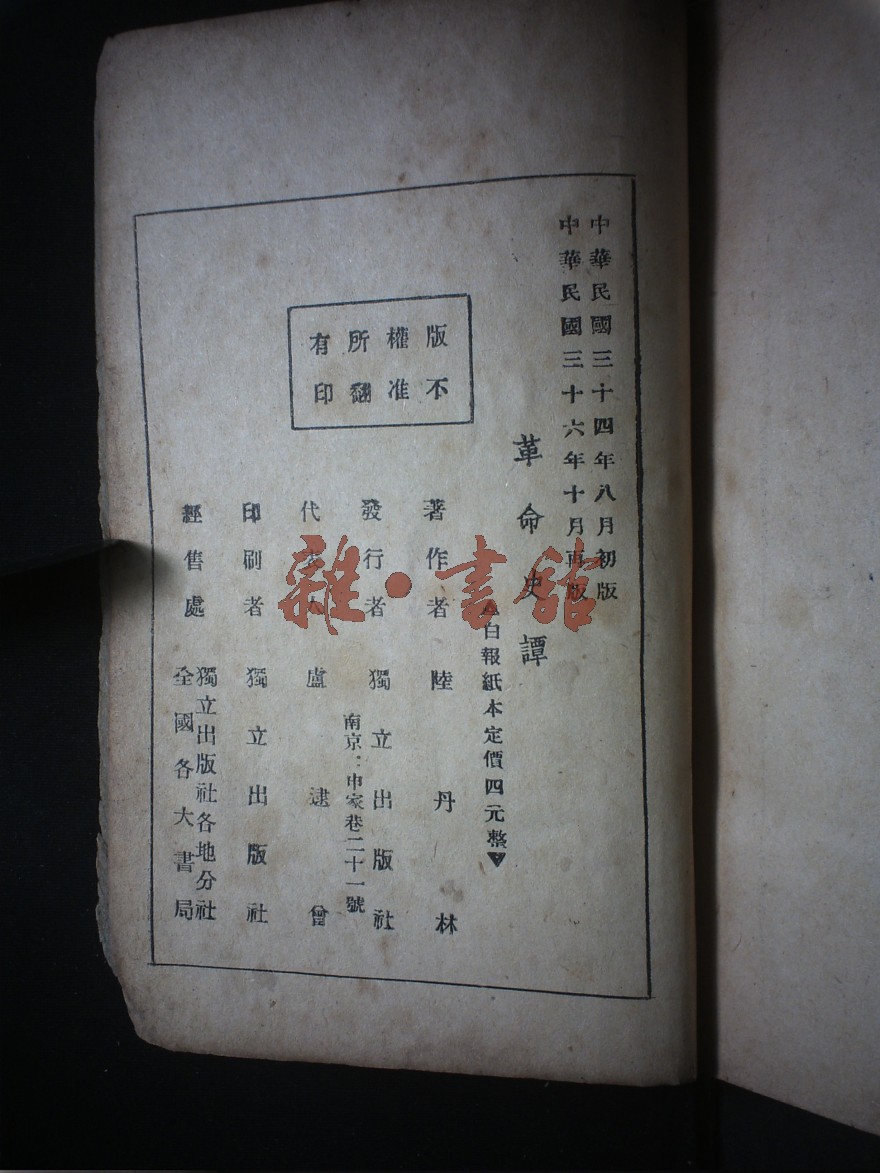 中華民國三十四年八月初版
中華民國三十六年十月再版
革命史譚
▲白報紙本定價四元整▼
版權所有
不准翻印
著作者 陸丹林
發行者 獨立出版社
南京：申家巷二十一號
代表人 盧逮曾
印刷者 獨立出版社
經售處 獨立出版社各地分社
全國各大書局
雜·書館